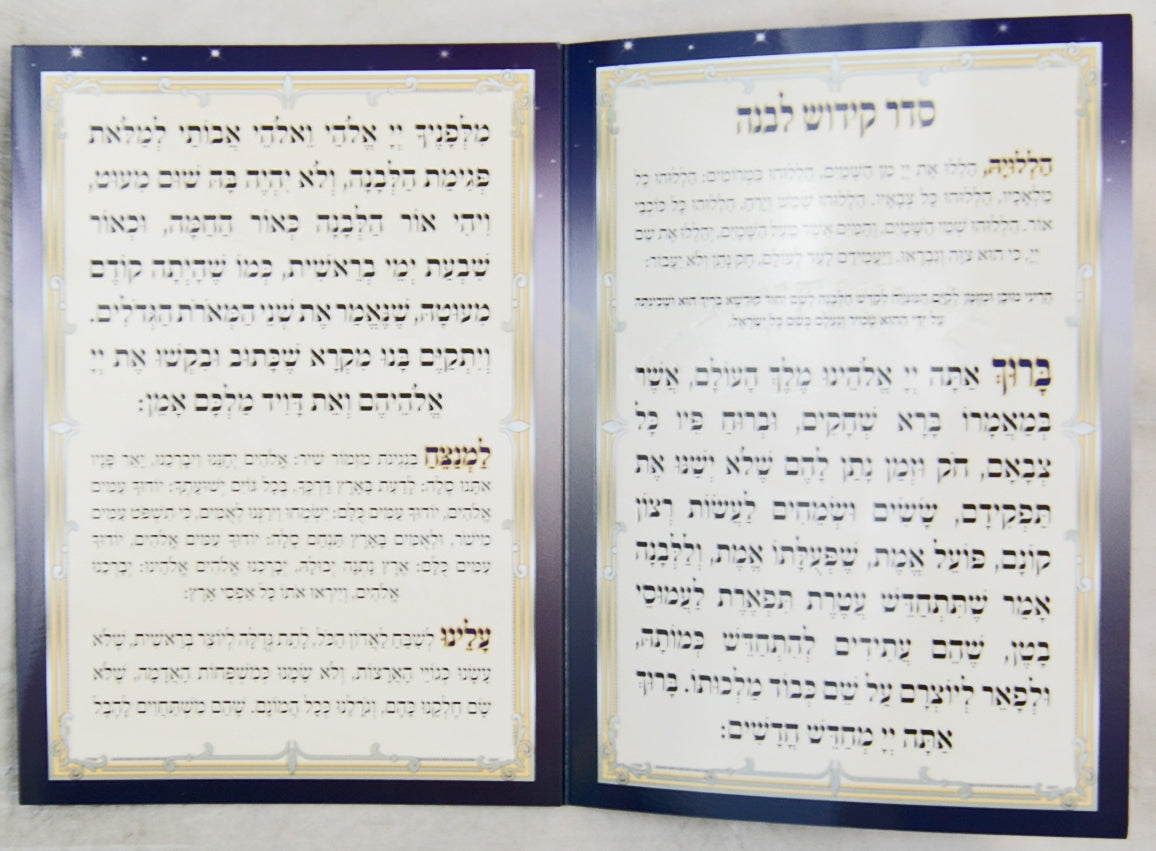 סדר קידוש לבנה
הַלְלוּיָהּ, הַלְלוּ אֶת יְיָ מִן הַשָּׁמַיִם, הַלְלוּהוּ בַּמְּרוֹמִים: הַלְלוּהוּ כָל
מַלְאָכָיו, הַלְלוּהוּ כָּל צְבָאָיו. הַלְלוּהוּ שֶׁמֶשׁ וְיָרֵחַ, הַלְלוּהוּ כָּל כּוֹכְבֵי
אוֹר. הַלְלוּהוּ שְׁמֵי הַשָּׁמָיִם, וְהַמַּיִם אֲשֶׁר מֵעַל הַשָּׁמָיִם, יְהַלְלוּ אֶת שֵׁם
יְיָ, כִּי הוּא צִוָּה וְנִבְרָאוּ. וַיַּעֲמִידֵם לָעַד לְעוֹלָם, חָק נָתַן וְלֹא יַעֲבוֹר:
הריני מוכן ומזומן לקיים המצוה לקדש הלבנה לשם יחוד קודשא בריך הוא ושכינתה
על ידי ההוא טמיר ונעלם בשם כל ישראל.
בָּרוּךְ אַתָּה יְיָ אֱלֹהֵינוּ מֶלֶךְ הָעוֹלָם, אֲשֶׁר
בְּמַאֲמָרוֹ בָּרָא שְׁחָקִים, וּבְרוּחַ פִּיו כָּל
צְבָאָם, חֹק וּזְמַן נָתַן לָהֶם שֶׁלֹּא יְשַׁנּוּ אֶת
תַּפְקִידָם, שָׂשִׂים וּשְׂמֵחִים לַעֲשׂוֹת רְצוֹן
קוֹנָם, פּוֹעֵל אֱמֶת, שֶׁפְּעֻלָּתוֹ אֱמֶת, וְלַלְּבָנָה
אָמַר שֶׁתִּתְחַדֵּשׁ עֲטֶרֶת תִּפְאֶרֶת לַעֲמוּסֵי
בָטֶן, שֶׁהֵם עֲתִידִים לְהִתְחַדֵּשׁ כְּמוֹתָהּ,
וּלְפָאֵר לְיוֹצְרָם עַל שֵׁם כְּבוֹד מַלְכוּתוֹ. בָּרוּךְ
אַתָּה יְיָ מְחַדֵּשׁ חֳדָשִׁים:
מִלְּפָנֶיךָ יְיָ אֱלֹהַי וֵאלֹהֵי אֲבוֹתַי לְמַלֹּאת
פְּגִימַת הַלְּבָנָה, וְלֹא יִהְיֶה בָּהּ שׁוּם מִעוּט,
וִיהִי אוֹר הַלְּבָנָה כְּאוֹר הַחַמָּה, וּכְאוֹר
שִׁבְעַת יְמֵי בְרֵאשִׁית, כְּמוֹ שֶׁהָיְתָה קוֹדֶם
מִעוּטָהּ, שֶׁנֶּאֱמַר אֶת שְׁנֵי הַמְּאֹרֹת הַגְּדֹלִים.
וְיִתְקַיֵּם בָּנוּ מִקְרָא שֶׁכָּתוּב וּבִקְשׁוּ אֶת יְיָ
אֱלֹהֵיהֶם וְאֵת דָּוִיד מַלְכָּם אָמֵן:
לַמְנַצֵּחַ בִּנְגִינֹת מִזְמוֹר שִׁיר: אֱלֹהִים יְחָנֵּנוּ וִיבָרְכֵנוּ, יָאֵר פָּנָיו
אִתָּנוּ סֶלָה: לָדַעַת בָּאָרֶץ דַּרְכֶּךָ, בְּכָל גּוֹיִם יְשׁוּעָתֶךָ: יוֹדוּךָ עַמִּים
אֱלֹהִים, יוֹדוּךָ עַמִּים כֻּלָּם: יִשְׂמְחוּ וִירַנְּנוּ לְאֻמִּים, כִּי תִשְׁפֹּט עַמִּים
מִישֹׁר, וּלְאֻמִּים בָּאָרֶץ תַּנְחֵם סֶלָה: יוֹדוּךָ עַמִּים אֱלֹהִים, יוֹדוּךָ
עַמִּים כֻּלָּם: אֶרֶץ נָתְנָה יְבוּלָהּ, יְבָרְכֵנוּ אֱלֹהִים אֱלֹהֵינוּ: יְבָרְכֵנוּ
אֱלֹהִים, וְיִירְאוּ אֹתוֹ כָּל אַפְסֵי אָרֶץ:
עָלֵינוּ לְשַׁבֵּחַ לַאֲדוֹן הַכֹּל, לָתֵת גְּדֻלָּה לְיוֹצֵר בְּרֵאשִׁית, שֶׁלֹּא
עָשָׂנוּ כְּגוֹיֵי הָאֲרָצוֹת, וְלֹא שָׂמָנוּ כְּמִשְׁפְּחוֹת הָאֲדָמָה, שֶׁלֹּא
שָׂם חֶלְקֵנוּ כָּהֶם, וְגֹרָלֵנוּ כְּכָל הֲמוֹנָם. שֶׁהֵם מִשְׁתַּחֲוִים לְהֶבֶל